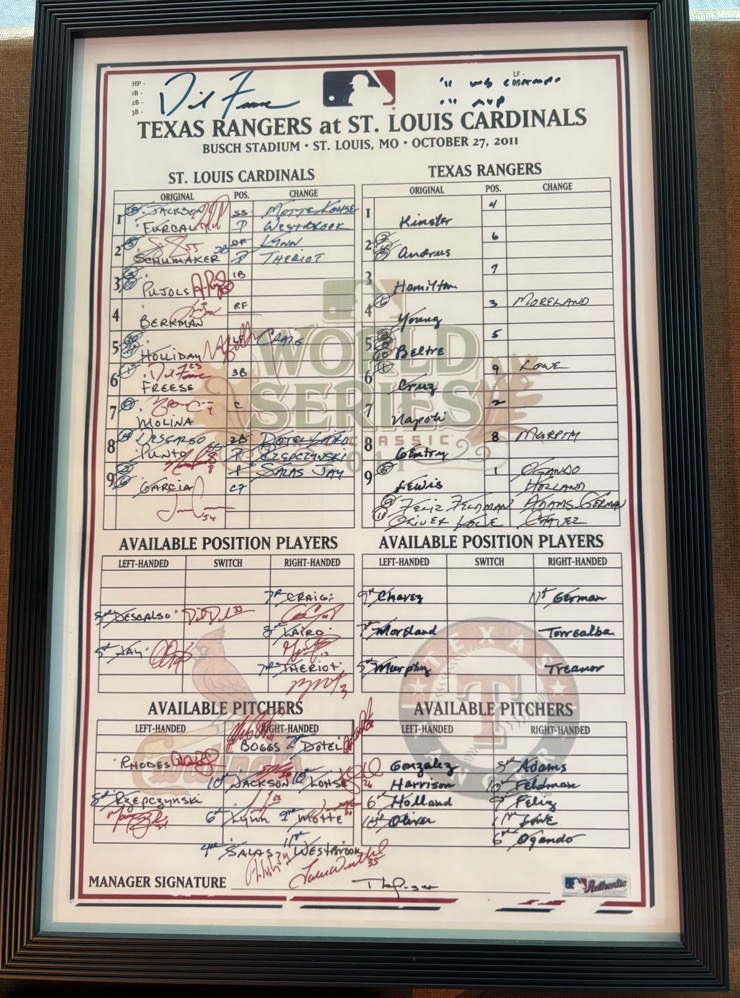 HP -
1B -
2B -
3B -
LF -
'11 WS CHAMPS
'11 MVP
TEXAS RANGERS at ST. LOUIS CARDINALS
BUSCH STADIUM • ST. LOUIS, MO • OCTOBER 27, 2011
ST. LOUIS CARDINALS
ORIGINAL POS. CHANGE
1 JACKSON MOTTE KOHSE
FURCAL SS P WESTBROOK
2 LYNN
SCHUMAKER P THERIOT
3 PUJOLS 1B
4 BERKMAN RF
5 HOLLIDAY LF CRAIG
6 FREESE 3B
7 MOLINA C
8 DESCALSO 2B DOTEL
PUNTO P RZEPCZYNSKI
9 P SALAS JAY
GARCIA CF
54
TEXAS RANGERS
ORIGINAL POS. CHANGE
1 Kinsler 4
2 Andrus 6
3 Hamilton 7
4 Young 3 MORELAND
5 Beltre 5
6 Cruz 9 LOWE
7 Napoli 2
8 Gentry 8 MURPHY
9 Lewis 1 OGANDO
HOLLAND
FELIZ FELDMAN ADAMS GERMAN
OLIVER LOWE CHAVEZ
WORLD
SERIES
CLASSIC
AVAILABLE POSITION PLAYERS
LEFT-HANDED SWITCH RIGHT-HANDED
7th CRAIG
8th DESCALSO
8th LAIRD
5th JAY
7th THERIOT
AVAILABLE POSITION PLAYERS
LEFT-HANDED SWITCH RIGHT-HANDED
9th Chavez 11th German
7th Moreland Torrealba
5th Murphy Treanor
TEXAS
T
AVAILABLE PITCHERS
LEFT-HANDED RIGHT-HANDED
BOGGS 7th DOTEL
RHODES
10th JACKSON 10th LOHSE
8th RZEPCZYNSKI
6th LYNN 9th MOTTE
4th SALAS 11th WESTBROOK
AVAILABLE PITCHERS
LEFT-HANDED RIGHT-HANDED
Gonzalez 8th Adams
Harrison 10th Feldman
6th Holland 9th Feliz
10th Oliver 11th Lowe
6th Ogando
MANAGER SIGNATURE
Authentic